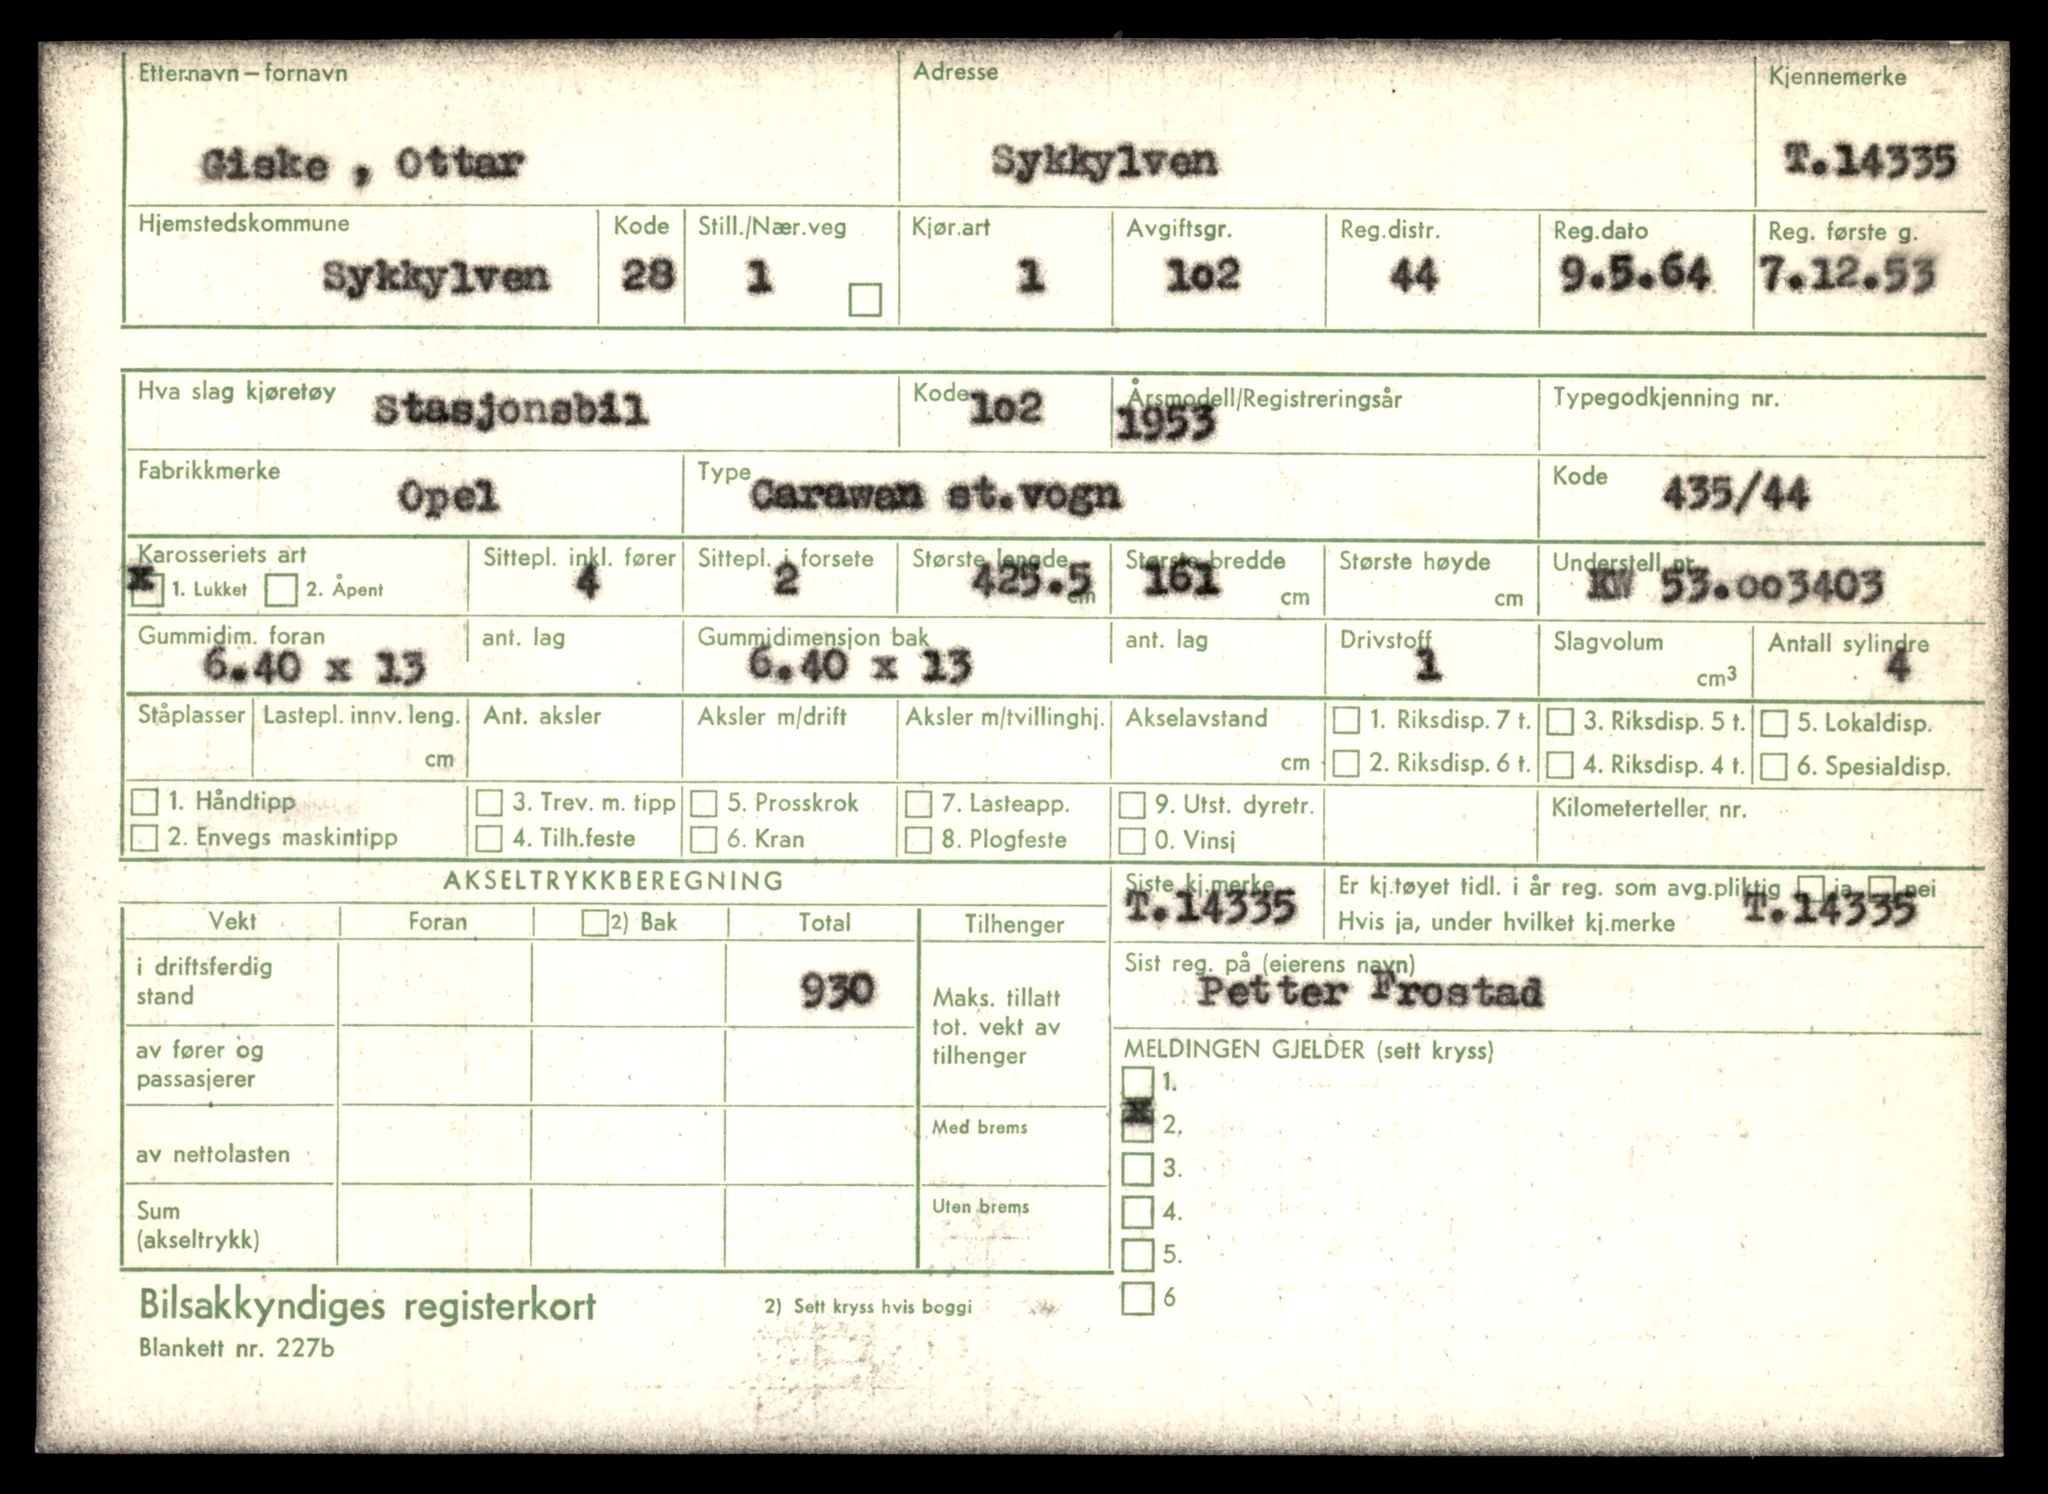 Etternavn – fornavn Adresse Kjennemerke
Giske , Ottar Sykkylven T.14335
Hjemstedskommune Kode Still./Nær.veg Kjør.art Avgiftsgr. Reg.distr. Reg.dato Reg. første g.
Sykkylven 28 1 1 1o2 44 9.5.64 7.12.53
Hva slag kjøretøy Stasjonsbil Kode 1o2 Årsmodell/Registreringsår 1953 Typegodkjenning nr.
Fabrikkmerke Opel Type Carawan st.vogn Kode 435/44
Karosseriets art Sittepl. inkl. fører Sittepl. i forsete Største lengde Største bredde Største høyde Understell nr.
x 1. Lukket 2. Åpent 4 2 425.5 cm 161 cm cm KW 53.oo3403
Gummidim. foran ant. lag Gummidimensjon bak ant. lag Drivstoff Slagvolum Antall sylindre
6.40 x 13 6.40 x 13 1 cm3 4
Ståplasser Lastepl. innv. leng. Ant. aksler Aksler m/drift Aksler m/tvillinghj. Akselavstand 1. Riksdisp. 7 t. 3. Riksdisp. 5 t. 5. Lokaldisp.
cm cm 2. Riksdisp. 6 t. 4. Riksdisp. 4 t. 6. Spesialdisp.
1. Håndtipp 3. Trev. m. tipp 5. Prosskrok 7. Lasteapp. 9. Utst. dyretr. Kilometerteller nr.
2. Envegs maskintipp 4. Tilh.feste 6. Kran 8. Plogfeste 0. Vinsj
AKSELTRYKKBEREGNING
Vekt Foran 2) Bak Total Tilhenger
i driftsferdig
stand 930
av fører og
passasjerer
av nettolasten
Sum
(akseltrykk)
Maks. tillatt
tot. vekt av
tilhenger
Med brems
Uten brems
Siste kj.merke Er kj.tøyet tidl. i år reg. som avg.pliktig ja nei
T.14335 Hvis ja, under hvilket kj.merke T.14335
Sist reg. på (eierens navn)
Petter Frostad
MELDINGEN GJELDER (sett kryss)
1.
x 2.
3.
4.
5.
6
Bilsakkyndiges registerkort 2) Sett kryss hvis boggi
Blankett nr. 227b